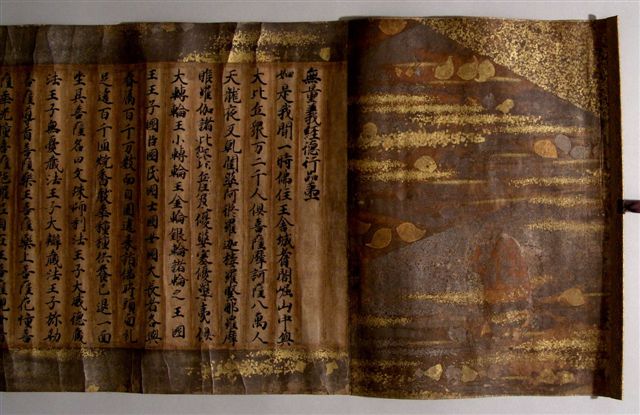 無量義経徳行品第一
如是我聞一時佛住王舎城耆闍崛山中與
大比丘衆万二千人倶菩薩摩訶薩八萬人
天龍夜叉乾闥婆阿脩羅迦樓羅緊那羅摩
睺羅伽諸比丘比丘尼及優婆塞優婆夷倶
大轉輪王小轉輪王金輪銀輪諸輪之王國
王王子國臣國民國士國女國大長者各與
眷属百千万數而自圍遶来詣佛所頭面礼
足遶百千匝焼香散華種種供養已退一面
坐其菩薩名曰文殊師利法王子大威徳蔵
法王子無憂蔵法王子大辯蔵法王子弥勒
菩薩導首菩薩薬王菩薩薬上菩薩花幢菩